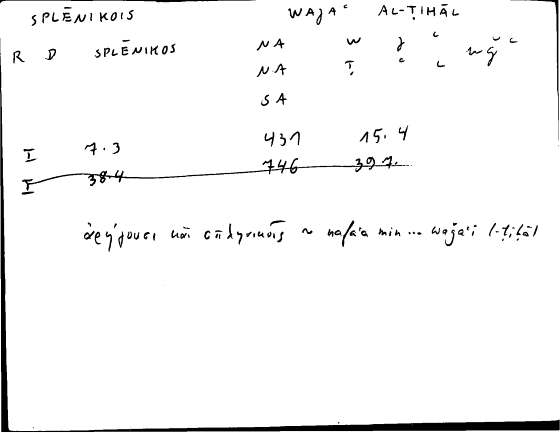 SPLĒNIKOIS WAJAʿ AL-ṬIḤĀL
R D SPLĒNIKOS NA W J ʿ
NA Ṭ
SA
I 7.3 431 15.4
I 38.4 746 397.
ἀρήγουσι καὶ σπληνικοῖς ~ nafaʿa min ... waǧaʿi l-ṭiḥāl